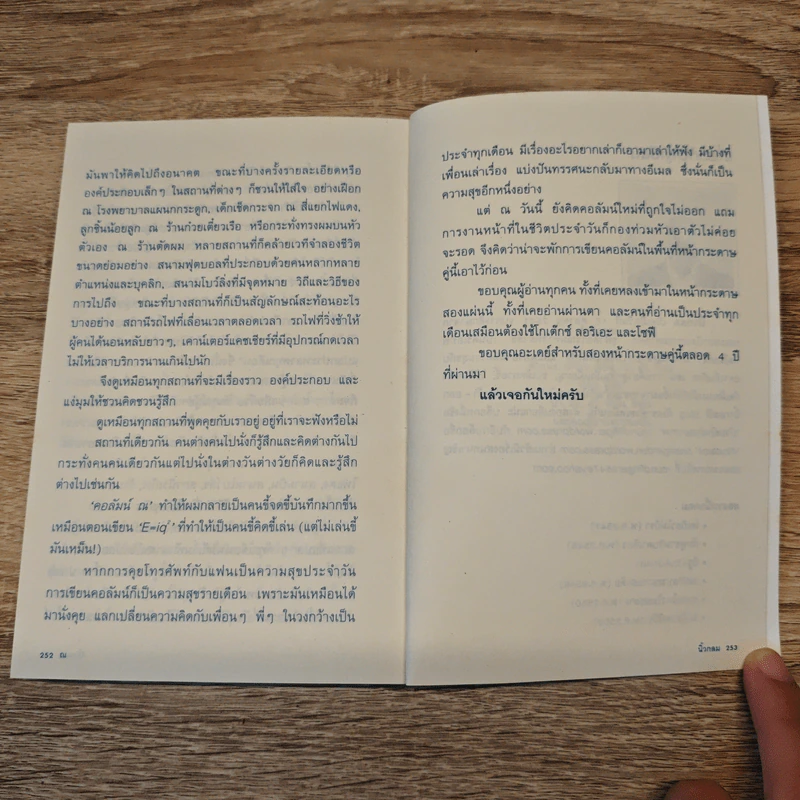 มันพาให้คิดไปถึงอนาคต ขณะที่บางครั้งรายละเอียดหรือ
องค์ประกอบเล็กๆ ในสถานที่ต่างๆ ก็ชวนให้ใส่ใจ อย่างเฝือก
ณ โรงพยาบาลแผนกกระดูก, เด็กเช็ดกระจก ณ สี่แยกไฟแดง,
ลูกชิ้นน้อยลูก ณ ร้านก๋วยเตี๋ยวเรือ หรือกระทั่งทรงผมบนหัว
ตัวเอง ณ ร้านตัดผม หลายสถานที่ก็คล้ายเวทีจำลองชีวิต
ขนาดย่อมอย่าง สนามฟุตบอลที่ประกอบด้วยคนหลากหลาย
ตำแหน่งและบุคลิก, สนามโบว์ลิ่งที่มีจุดหมาย วิถีและวิธีของ
การไปถึง ขณะที่บางสถานที่ก็เป็นสัญลักษณ์สะท้อนอะไร
บางอย่าง สถานีรถไฟที่เลื่อนเวลาตลอดเวลา รถไฟที่วิ่งช้าให้
ผู้คนได้นอนหลับยาวๆ, เคาน์เตอร์แคชเชียร์ที่มีอุปกรณ์กดเวลา
ไม่ให้เวลาบริการนานเกินไปนัก
จึงดูเหมือนทุกสถานที่จะมีเรื่องราว องค์ประกอบ และ
แง่มุมให้ชวนคิดชวนรู้สึก
ดูเหมือนทุกสถานที่พูดคุยกับเราอยู่ อยู่ที่เราจะฟังหรือไม่
สถานที่เดียวกัน คนต่างคนไปนั่งก็รู้สึกและคิดต่างกันไป
กระทั่งคนคนเดียวกันแต่ไปนั่งในต่างวันต่างวัยก็คิดและรู้สึก
ต่างไปเช่นกัน
'คอลัมน์ ณ' ทำให้ผมกลายเป็นคนขี้จดขี้บันทึกมากขึ้น
เหมือนตอนเขียน 'E=iq²' ที่ทำให้เป็นคนขี้คิดขี้เล่น (แต่ไม่เล่นขี้
มันเหม็น!)
หากการคุยโทรศัพท์กับแฟนเป็นความสุขประจำวัน
การเขียนคอลัมน์ก็เป็นความสุขรายเดือน เพราะมันเหมือนได้
มานั่งคุย แลกเปลี่ยนความคิดกับเพื่อนๆ พี่ๆ ในวงกว้างเป็น
252 ณ
ประจำทุกเดือน มีเรื่องอะไรอยากเล่าก็เอามาเล่าให้ฟัง มีบ้างที่
เพื่อนเล่าเรื่อง แบ่งปันทรรศนะกลับมาทางอีเมล ซึ่งนั่นก็เป็น
ความสุขอีกหนึ่งอย่าง
แต่ ณ วันนี้ ยังคิดคอลัมน์ใหม่ที่ถูกใจไม่ออก แถม
การงานหน้าที่ในชีวิตประจำวันก็กองท่วมหัวเอาตัวไม่ค่อย
จะรอด จึงคิดว่าน่าจะพักการเขียนคอลัมน์ในพื้นที่หน้ากระดาษ
คู่นี้เอาไว้ก่อน
ขอบคุณผู้อ่านทุกคน ทั้งที่เคยหลงเข้ามาในหน้ากระดาษ
สองแผ่นนี้ ทั้งที่เคยอ่านผ่านตา และคนที่อ่านเป็นประจำทุก
เดือนเสมือนต้องใช้โกเต๊กซ์ ลอริเอะ และโซฟี
ขอบคุณอะเดย์สำหรับสองหน้ากระดาษคู่นี้ตลอด 4 ปี
ที่ผ่านมา
แล้วเจอกันใหม่ครับ
นิ้วกลม 253